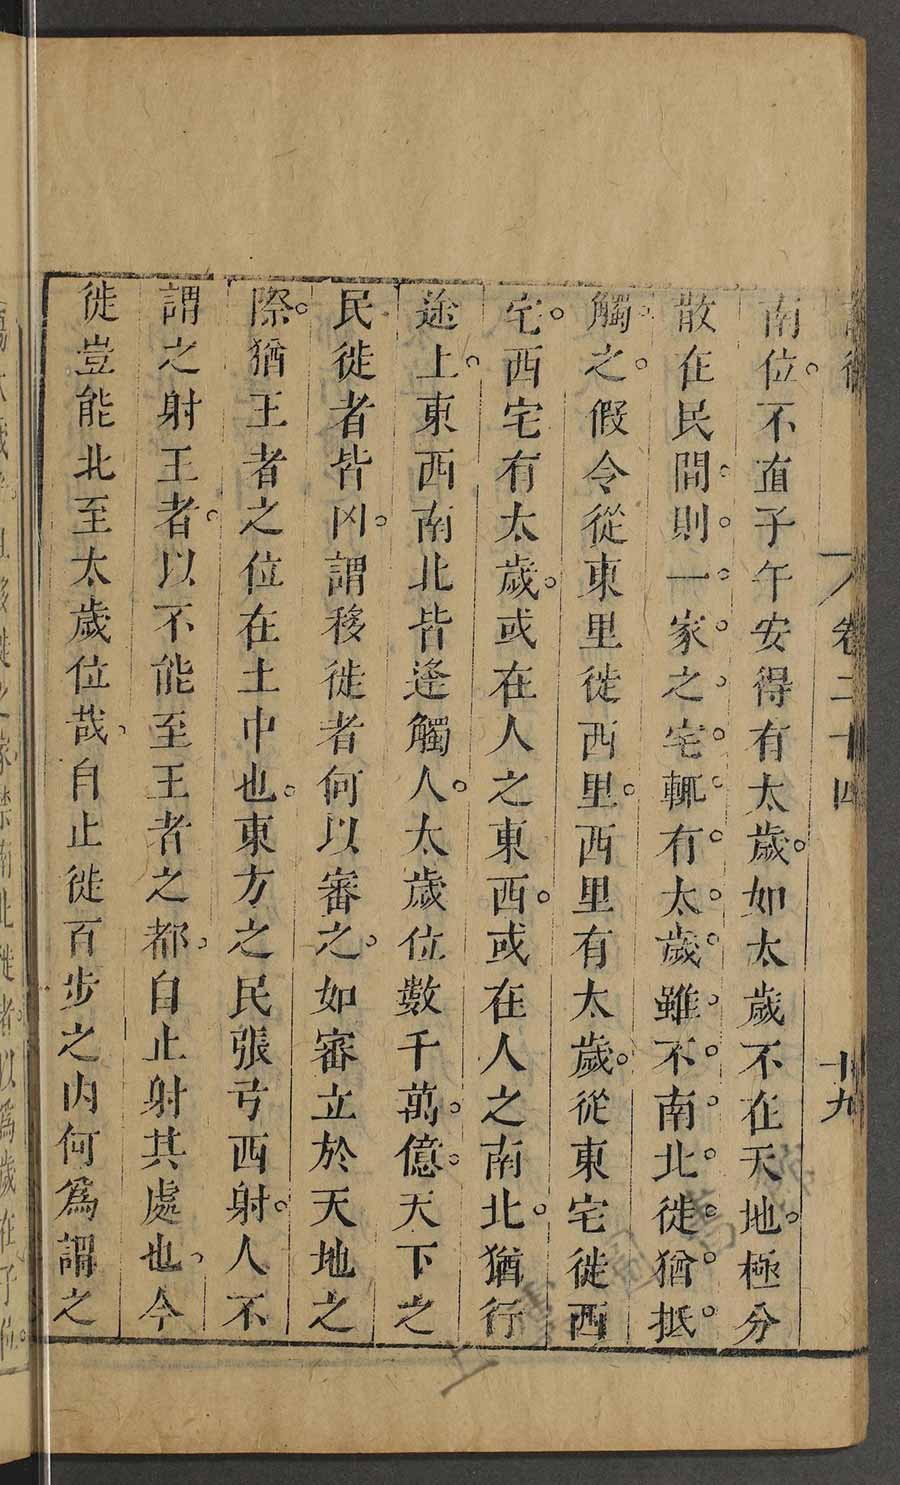 卷二十四
十九
南位。不直子午安得有太歲。如太歲不在天地。極分
散在民間。則。一。家。之。宅。輒。有。太。歲。雖。不。南。北。徙。猶。抵。
觸。之。假令從東里徙西里。西里有太歲。從東宅徙西
宅。西宅有太歲。或在人之東西。或在人之南北。猶行
途上。東西南北皆逢觸人。太歲位數千萬。億。天下之
民徙者皆凶。謂移徙者何以審之。如審立於天地之
際。猶王者之位在土中也。東方之民張弓西射。人不
謂之射王者。以不能至王者之都、自止射其處也、今
徙豈能北至太歲位哉、自止徙百步之內何爲謂之